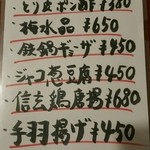 とり皮ポン酢¥380
梅水晶¥650
鉄鍋ギョーザ¥450
ジャコ葱豆腐¥450
信玄鶏唐男¥680
手羽揚げ¥450